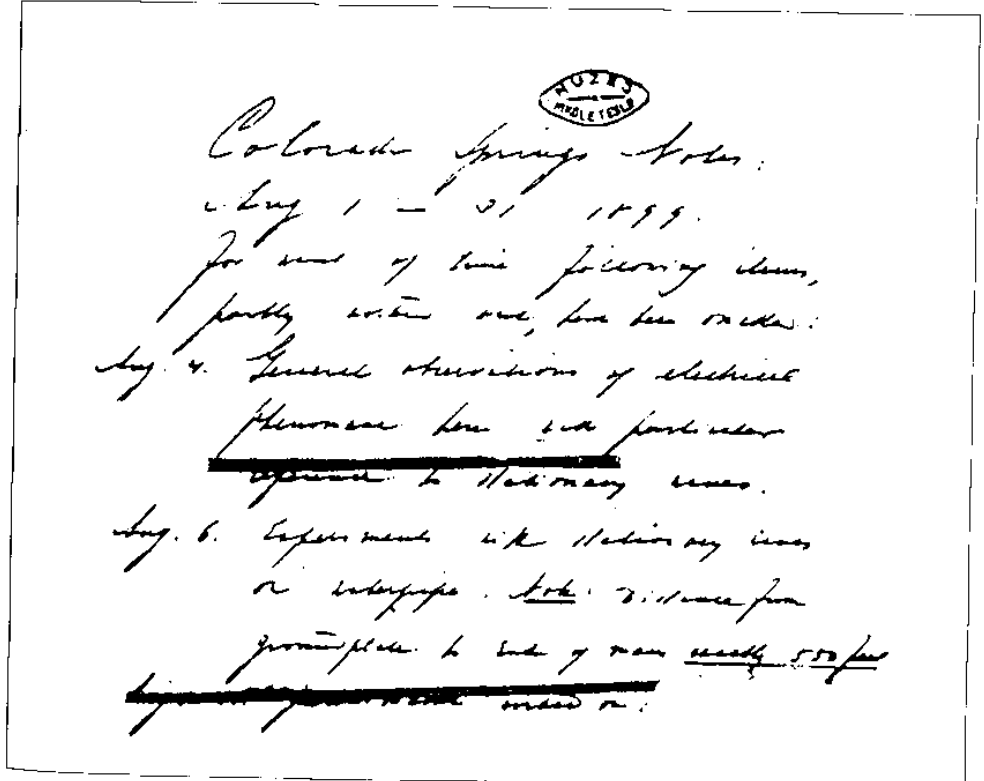 MUZEJ
NIKOLE TESLE
Colorado Springs Notes:
Aug 1 – 31 1899.
For want of time following items,
partly written out, have been omitted:
Aug. 4. General observations of electrical
phenomena here with particular
reference to stationary waves.
Aug. 6. Experiments with stationary waves
on waterpipe. Note: Distance from
groundplate to end of main exactly 550 feet
worked on: